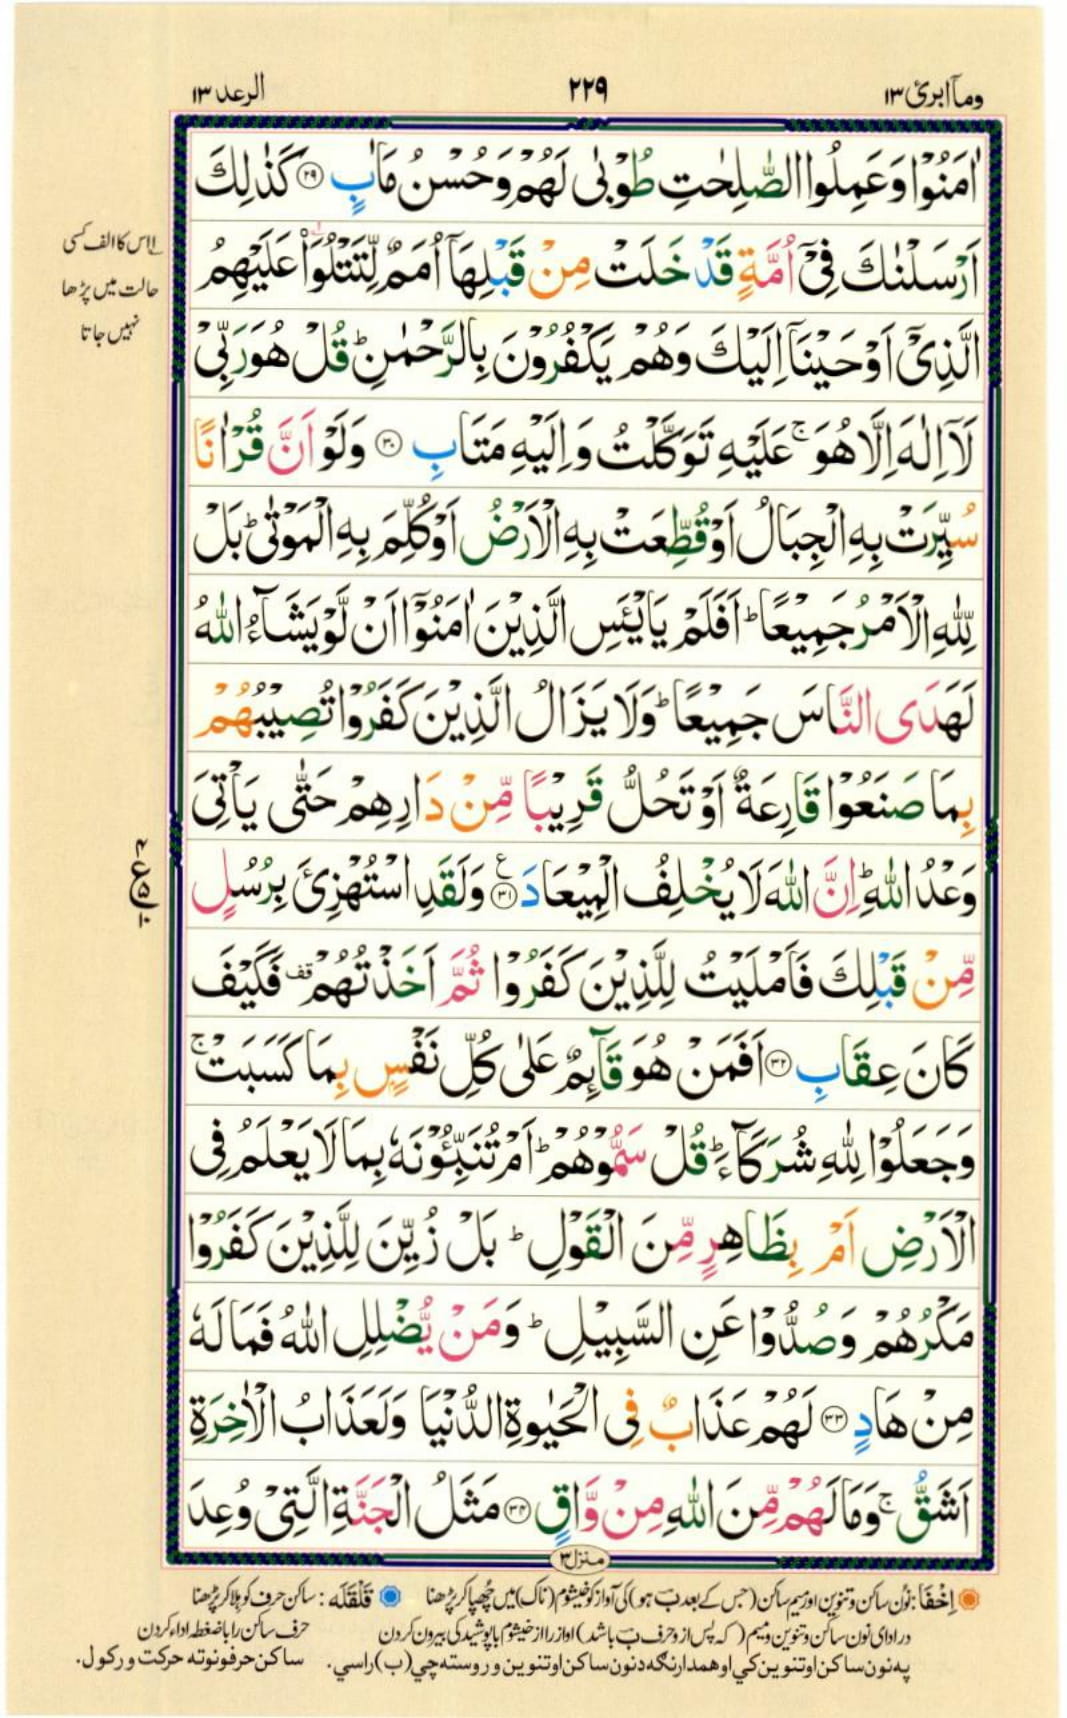 ومآ ابرئ ١٣ ٢٢٩ الرعد ١٣
اٰمَنُوْا وَعَمِلُوا الصّٰلِحٰتِ طُوْبٰى لَهُمْ وَحُسْنُ مَاٰبٍ ٢٩ كَذٰلِكَ
اَرْسَلْنٰكَ فِىْٓ اُمَّةٍ قَدْ خَلَتْ مِنْ قَبْلِهَآ اُمَمٌ لِّتَتْلُوَا۟ عَلَيْهِمُ
الَّذِىْٓ اَوْحَيْنَآ اِلَيْكَ وَهُمْ يَكْفُرُوْنَ بِالرَّحْمٰنِ ؕ قُلْ هُوَ رَبِّىْ
لَآ اِلٰهَ اِلَّا هُوَ ۚ عَلَيْهِ تَوَكَّلْتُ وَاِلَيْهِ مَتَابِ ٣٠ وَلَوْ اَنَّ قُرْاٰنًا
سُيِّرَتْ بِهِ الْجِبَالُ اَوْ قُطِّعَتْ بِهِ الْاَرْضُ اَوْ كُلِّمَ بِهِ الْمَوْتٰى ؕ بَلْ
لِّلّٰهِ الْاَمْرُ جَمِيْعًا ؕ اَفَلَمْ يَايْئَسِ الَّذِيْنَ اٰمَنُوْٓا اَنْ لَّوْ يَشَآءُ اللّٰهُ
لَهَدَى النَّاسَ جَمِيْعًا ؕ وَلَا يَزَالُ الَّذِيْنَ كَفَرُوْا تُصِيْبُهُمْ
بِمَا صَنَعُوْا قَارِعَةٌ اَوْ تَحُلُّ قَرِيْبًا مِّنْ دَارِهِمْ حَتّٰى يَاْتِىَ
وَعْدُ اللّٰهِ ؕ اِنَّ اللّٰهَ لَا يُخْلِفُ الْمِيْعَادَ ٣١ ع وَلَقَدِ اسْتُهْزِئَ بِرُسُلٍ
مِّنْ قَبْلِكَ فَاَمْلَيْتُ لِلَّذِيْنَ كَفَرُوْا ثُمَّ اَخَذْتُهُمْ قف فَكَيْفَ
كَانَ عِقَابِ ٣٢ اَفَمَنْ هُوَ قَآئِمٌ عَلٰى كُلِّ نَفْسٍ بِمَا كَسَبَتْ ۚ
وَجَعَلُوْا لِلّٰهِ شُرَكَآءَ ؕ قُلْ سَمُّوْهُمْ ؕ اَمْ تُنَبِّئُوْنَهٗ بِمَا لَا يَعْلَمُ فِى
الْاَرْضِ اَمْ بِظَاهِرٍ مِّنَ الْقَوْلِ ؕ بَلْ زُيِّنَ لِلَّذِيْنَ كَفَرُوْا
مَكْرُهُمْ وَصُدُّوْا عَنِ السَّبِيْلِ ؕ وَمَنْ يُّضْلِلِ اللّٰهُ فَمَا لَهٗ
مِنْ هَادٍ ٣٣ لَهُمْ عَذَابٌ فِى الْحَيٰوةِ الدُّنْيَا وَلَعَذَابُ الْاٰخِرَةِ
اَشَقُّ ۚ وَمَا لَهُمْ مِّنَ اللّٰهِ مِنْ وَّاقٍ ٣٤ مَثَلُ الْجَنَّةِ الَّتِىْ وُعِدَ
منزل ٣
اس کا الف کسی
حالت میں پڑھا
نہیں جاتا
اِخْفَا: نُون ساکن وتنوین اور میم ساکن (جس کے بعد بٓ ہو) کی آواز کو خیشوم (ناک) میں چُھپا کر پڑھنا قَلْقَلَه: ساکن حرف کو ہِلا کر پڑھنا
در ادای نون ساکن وتنوین ومیم (که پس از و حرف بٓ باشد) آواز را از خیشوم با پوشیدگی بیرون کردن حرف ساکن را با ضغطه ادا کردن
په نون ساکن او تنوین کي او همدارنګه د نون ساکن او تنوین وروسته چي (ب) راسي. ساکن حرفونو ته حرکت ورکول.